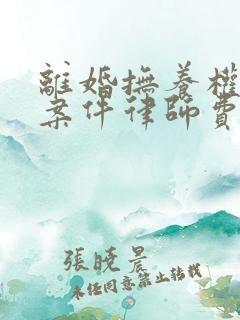 離婚撫養權
案件律師費
張曉晨
未任同意禁止转载